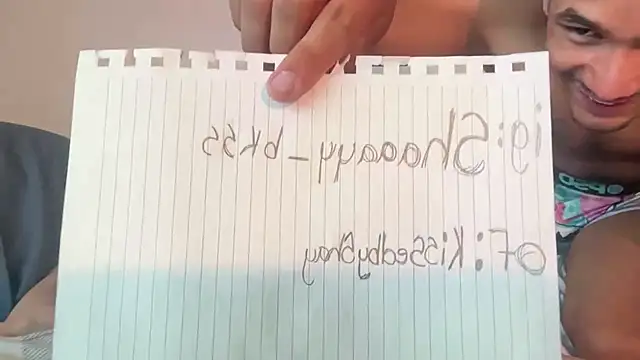 ig: Shaaayy_bk55
OF: KissedbyShay